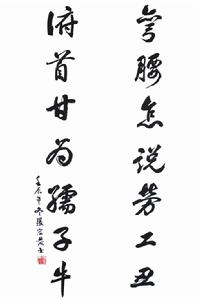 弯腰怎说劳工丑
俯首甘为孺子牛
壬辰年冬張